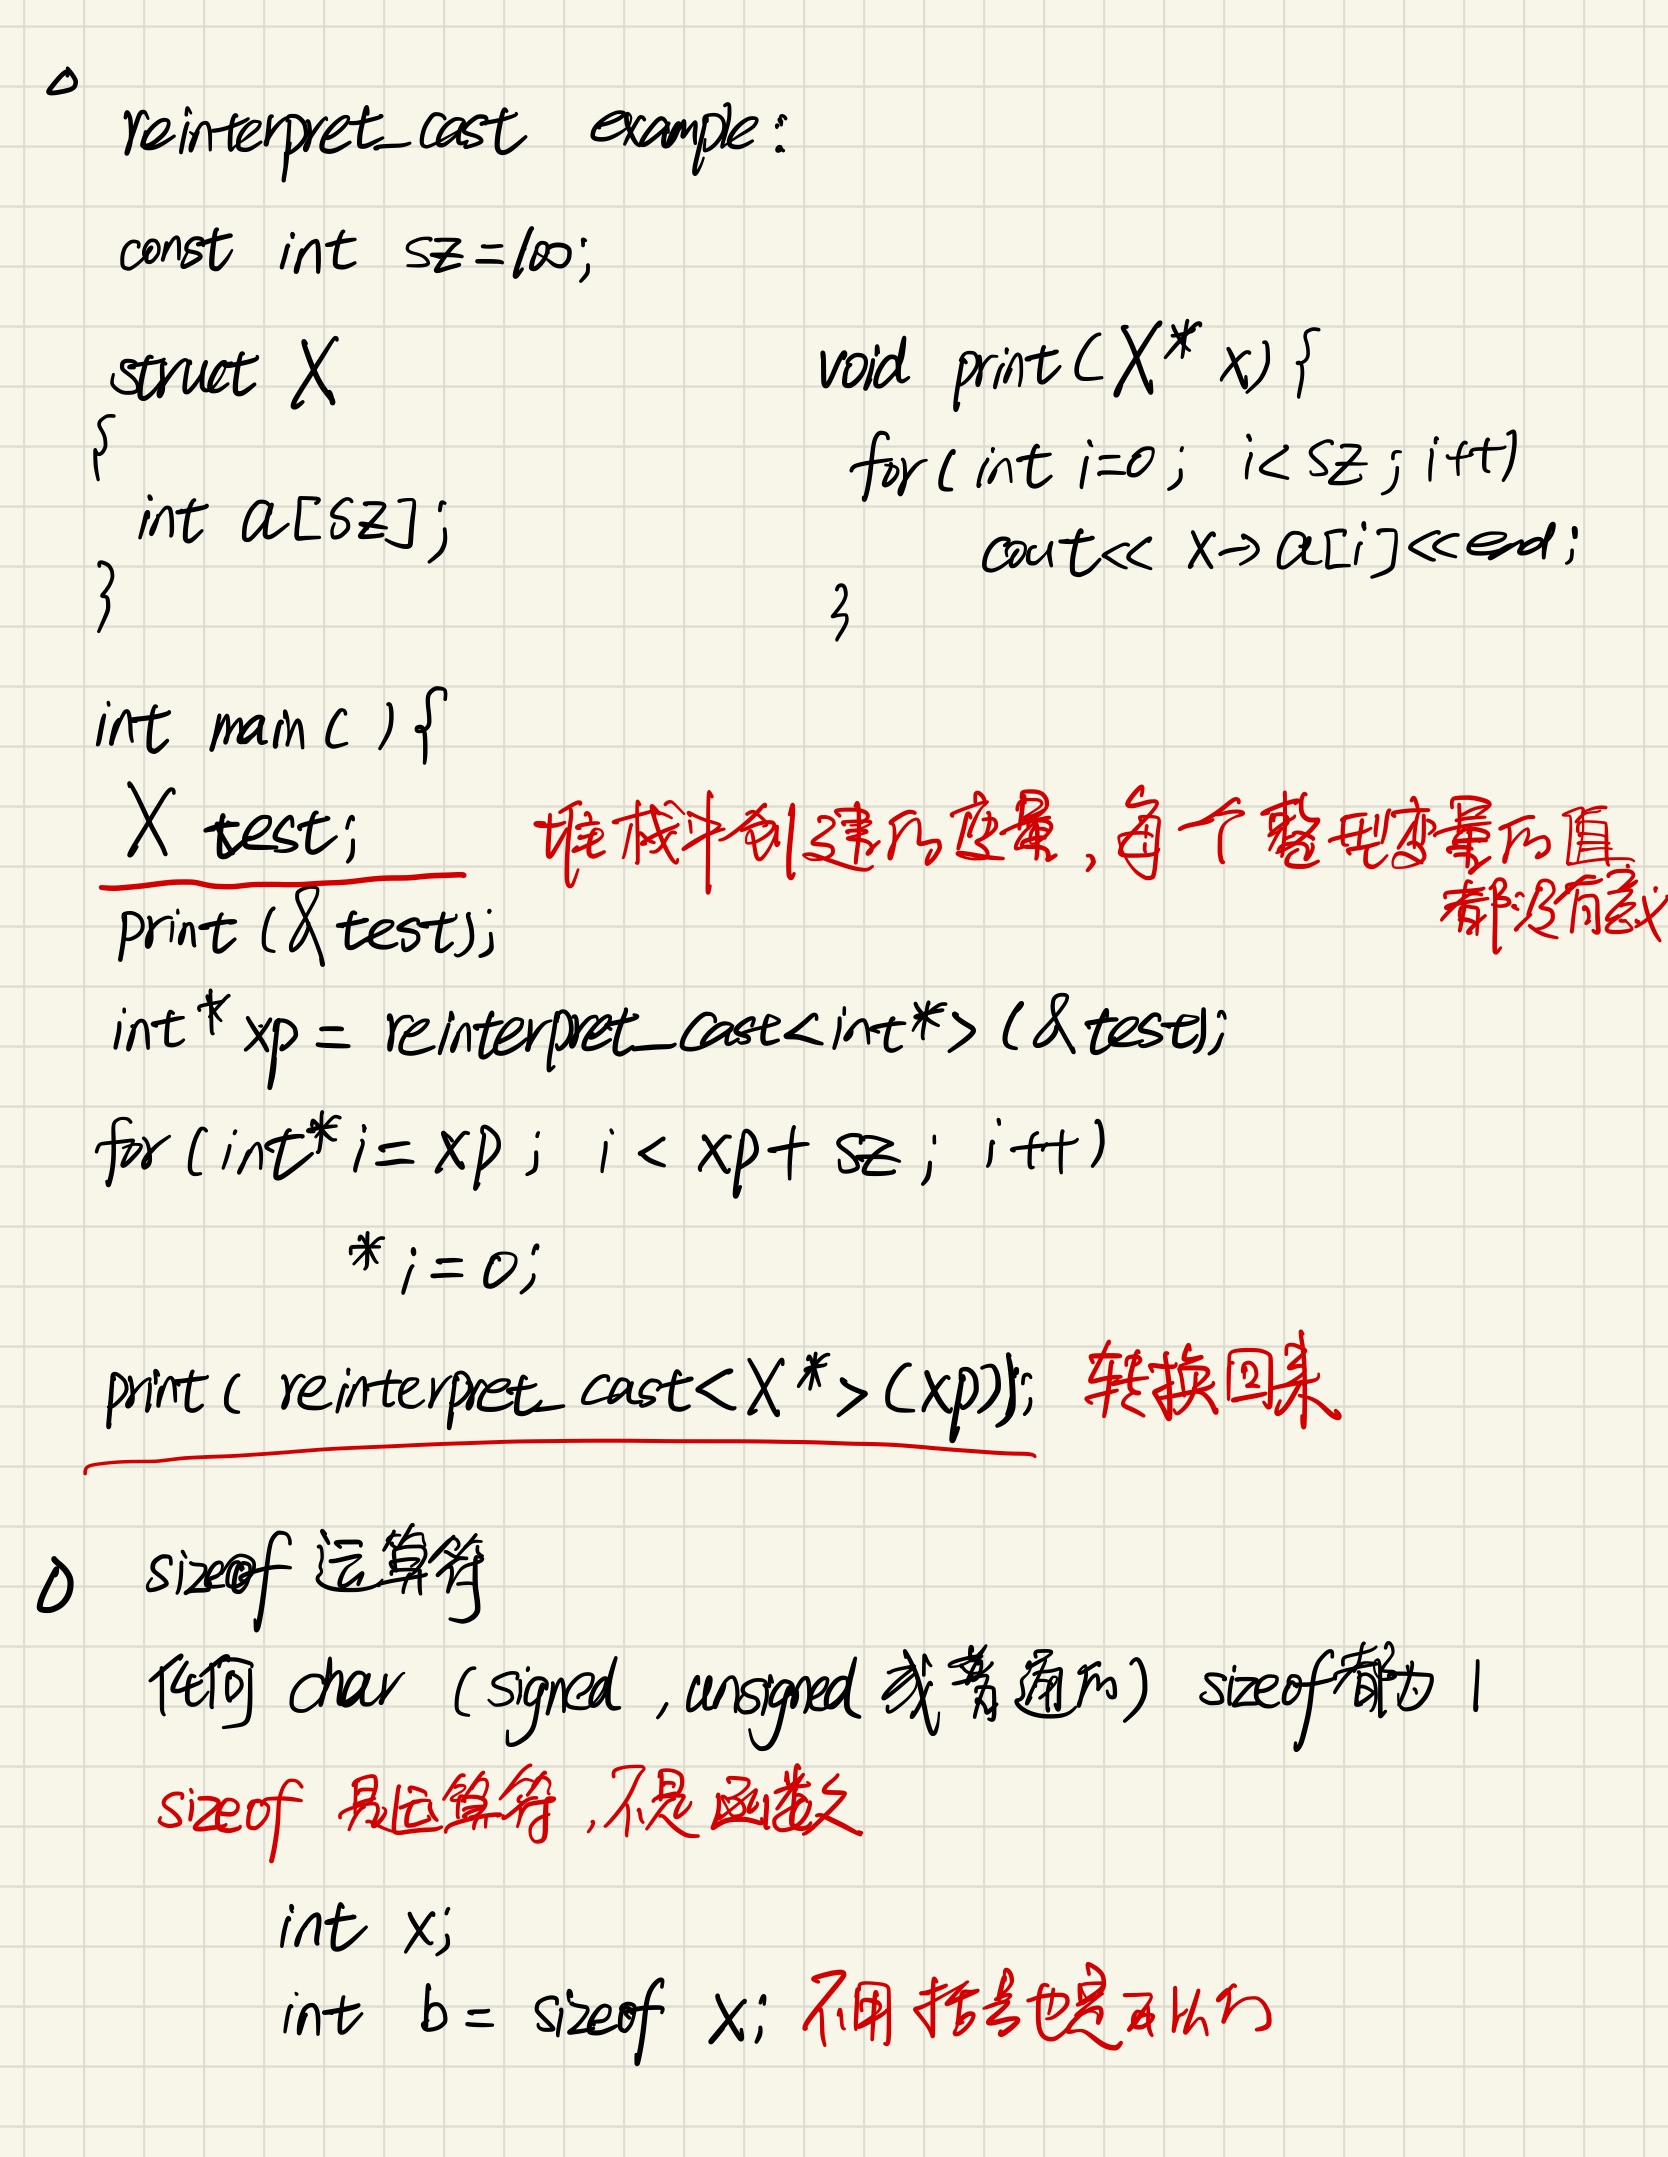 reinterpret_cast example:
const int sz=100;
struct X
{
int a[sz];
}
void print(X* x){
for(int i=0; i<sz; i++)
cout<< x->a[i]<<end;
}
int main( ){
X test; 堆栈中创建的变量,每个整型变量的值
都没有意义
print(&test);
int* xp = reinterpret_cast<int*>(&test);
for(int* i= xp; i < xp+ sz; i++)
*i=0;
print( reinterpret_cast<X*>(xp)); 转换回来
sizeof 运算符
任何 char (signed, unsigned 或普通的) sizeof都为1
sizeof 是运算符,不是函数
int x;
int b = sizeof x; 不用括号也是可以的